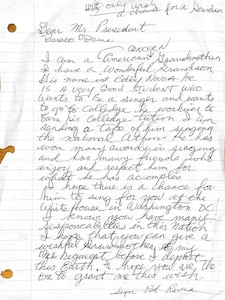 only wish
a chance for a Grandson
Dear Mr. President
Baraco O'Bama
I am a American Grandmother
I have a wonderful Grandson
His name is Eddy
is
A Very Good Student who
wants to Be a singer and wants
to go to Colledge. He working to
Earn his Colledge tution I am
sending a tape of him singing
the national Anthem. He has
won many awards in singing
and has many friends who
enjoy and respect him for
what he has accomples
I hope there is a chance for
him to sing for you at the
White House at Washington DC.
I know you have many
responceabilities in this Nation
I hope that you can give a
a Grandmother my
one Request before I depart
this Earth. I hope you're the
one to grant me this wish